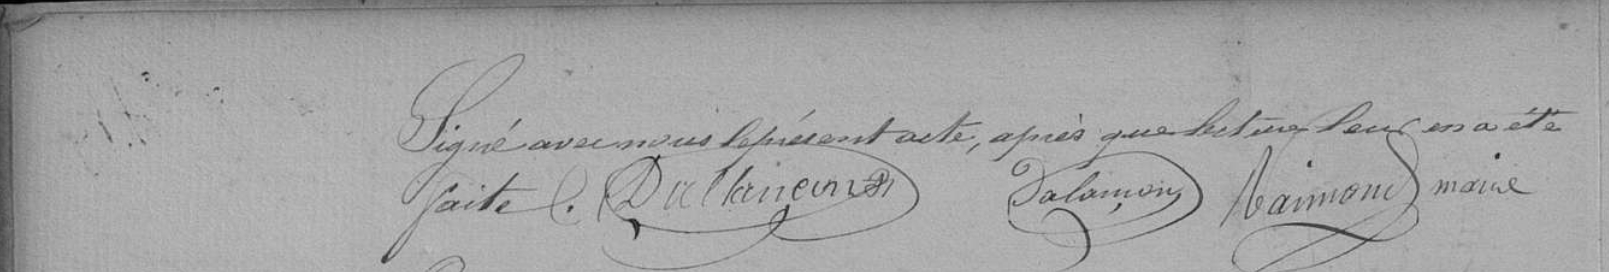 Signé avec nous le présent acte, après que lecture leur en a été
faite. Salamon Raimond maire